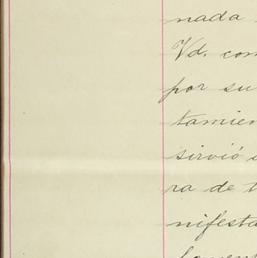 nada
Vd. com
por su
tamien
sirvió
ra de t
nifesta